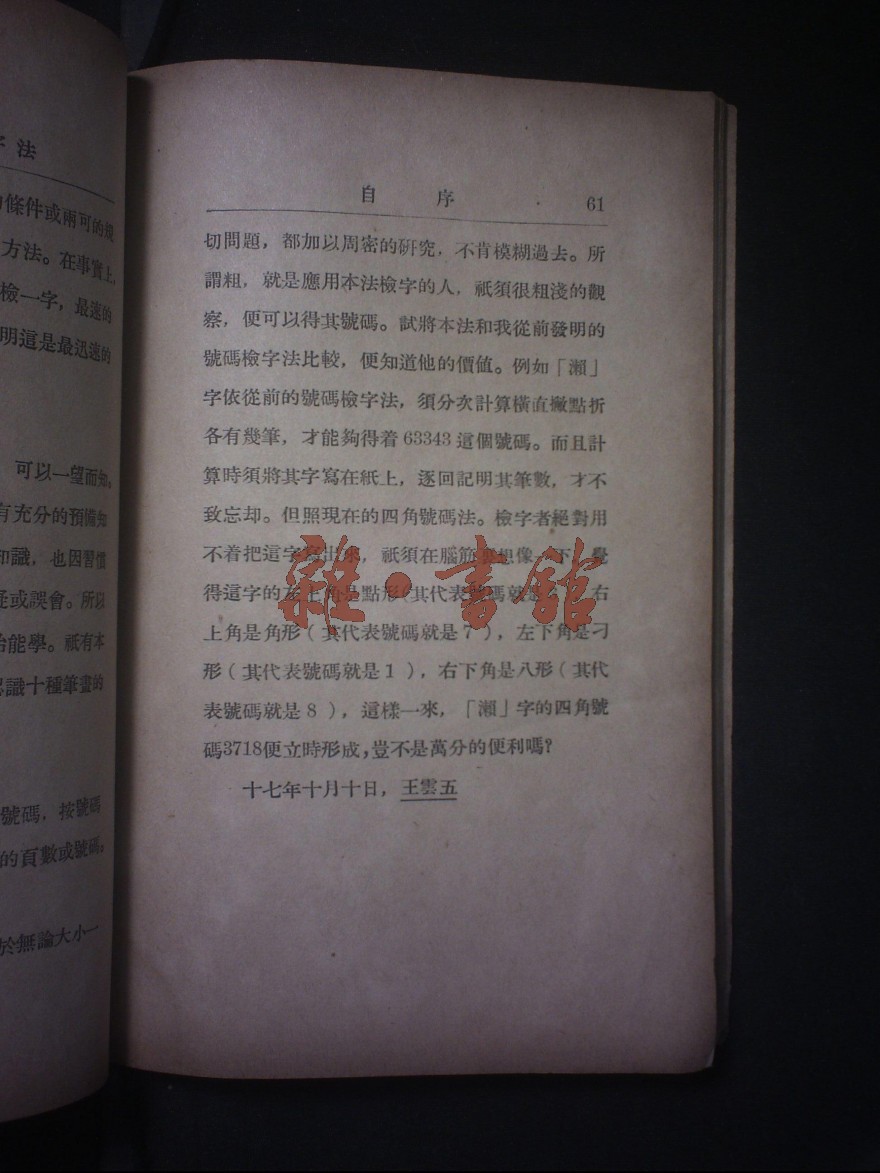 字法
條件或兩可的規
方法。在事實上,
檢一字，最速的
明這是最迅速的
可以一望而知。
有充分的預備知
知識，也因習慣
疑或誤會。所以
始能學。祇有本
認識十種筆畫的
號碼，按號碼
的頁數或號碼。
於無論大小一
自 序 61
切問題，都加以周密的研究，不肯模糊過去。所
謂粗，就是應用本法檢字的人，祇須很粗淺的觀
察，便可以得其號碼。試將本法和我從前發明的
號碼檢字法比較，便知道他的價値。例如「瀨」
字依從前的號碼檢字法，須分次計算橫直撇點折
各有幾筆，才能夠得着63343這個號碼。而且計
算時須將其字寫在紙上，逐回記明其筆數，才不
致忘却。但照現在的四角號碼法。檢字者絕對用
不着把這字寫出來，祇須在腦筋裏想像一下，覺
得這字的左上角是點形（其代表號碼就是 右
上角是角形（其代表號碼就是7），左下角是刁
形（其代表號碼就是1），右下角是八形（其代
表號碼就是8），這樣一來，「瀨」字的四角號
碼3718便立時形成，豈不是萬分的便利嗎？
十七年十月十日，王雲五
雜·書館